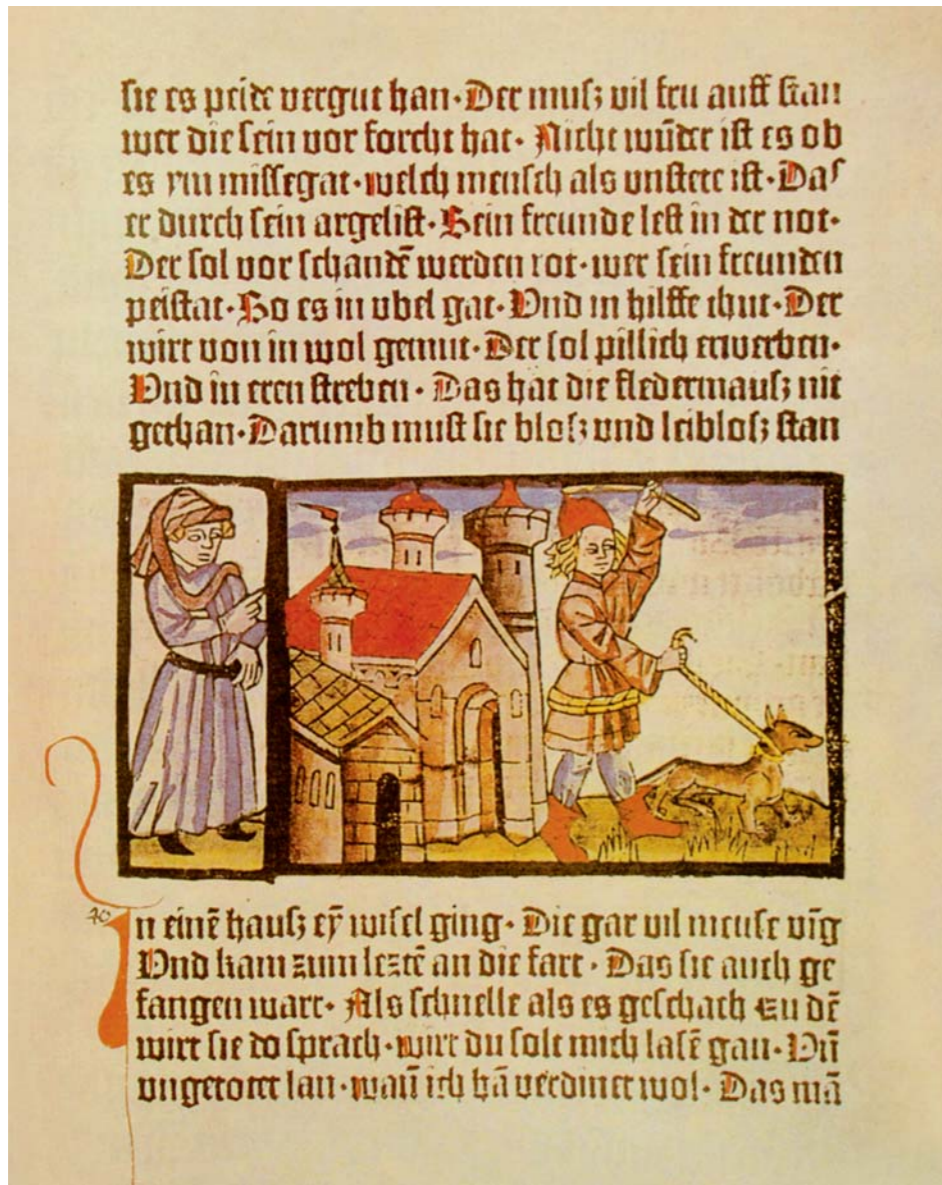 sie es peide vergut han·Der musz vil fru auff stan
wer die sein vor forcht hat· Nicht wūder ist es ob
es ym missegat·welch mensch als unstete ist·Das
er durch sein argelist·Sein freunde lest in der not·
Der sol vor schandē werden rot·wer sein freunden
peistat·So es in vbel gat·Vnd in hilffe thut·Der
wirt von in wol gemut·Der sol pillich erwerben·
Vnd in eren streben· Das hat die fledermausz nit
gethan·Darumb must sie blosz vnd leiblosz stan
40
In einē hausz eȳ wisel ging· Die gar vil meuse vīg
Vnd kam zum lezтē an die fart· Das sie auch ge
fangen wart· Als schnelle als es geschach Zu dē
wirt sie do sprach·wirt du solt mich lasē gan·Vn̄
vngetotet lan·wan̄ ich hā verdinet wol· Das mā